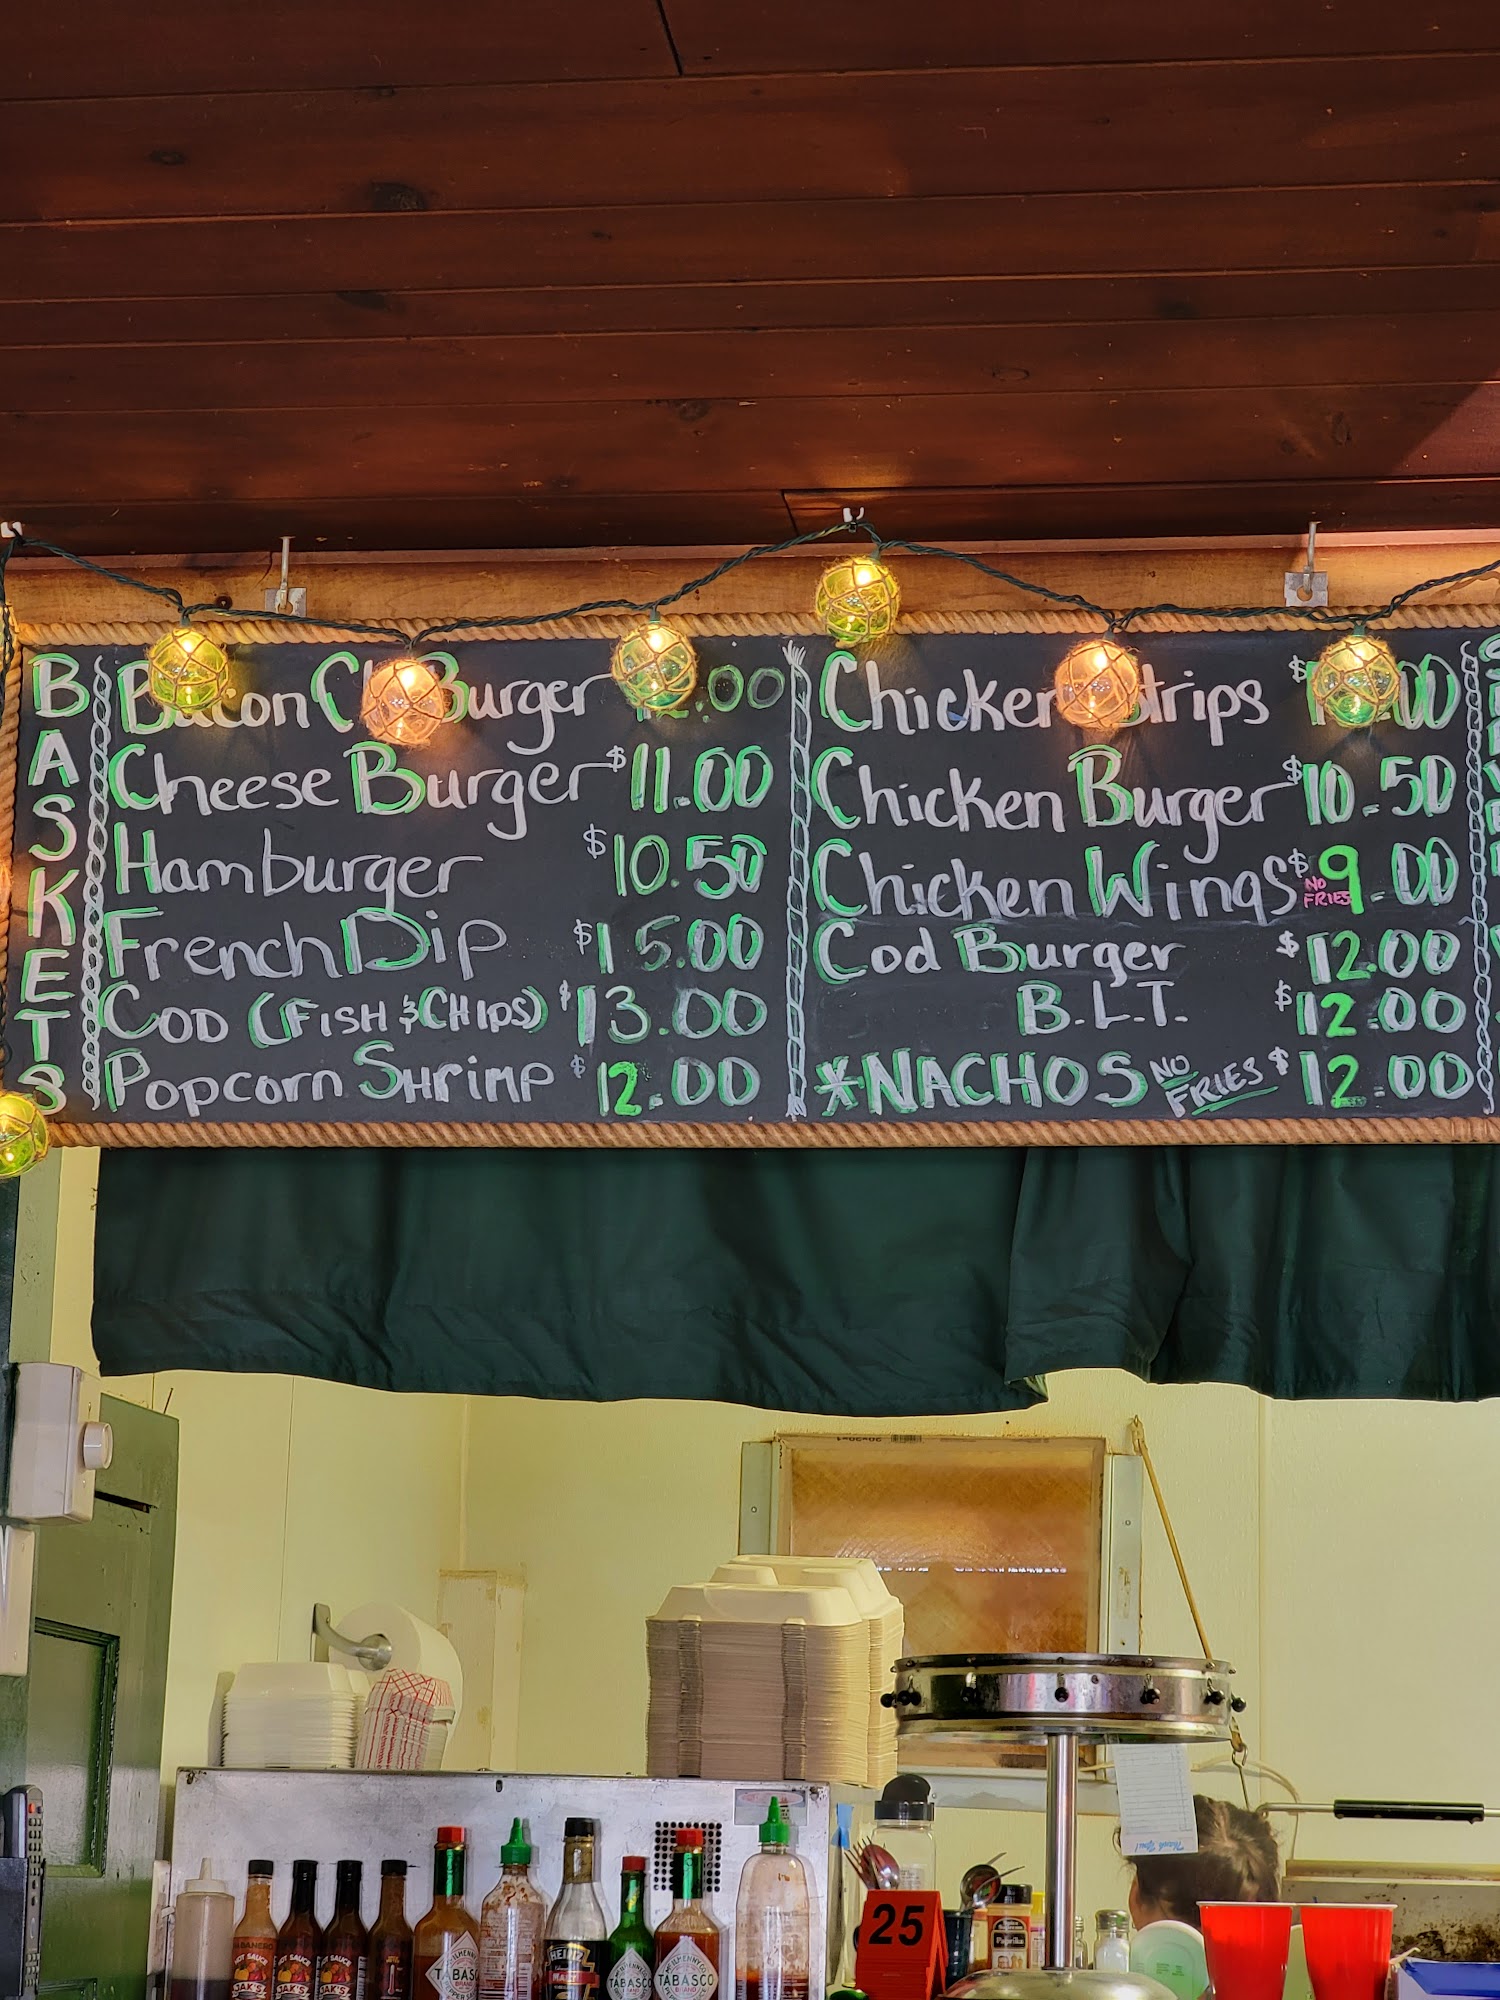 BASKETS
Bacon Burger .00
Cheese Burger $11.00
Hamburger $10.50
French Dip $15.00
COD (FISH & CHIPS) $13.00
Popcorn SHrimp $12.00
Chicken Strips $ .00
Chicken Burger $10.50
Chicken Wings $9.00
NO
FRIES
Cod Burger $12.00
B.L.T. $12.00
*NACHOS NO FRIES $12.00
Thank You!
25
HOT SAUCE
HOT SAUCE
HEINZ
TABASCO
BRAND
TABASCO
BRAND
Paprika